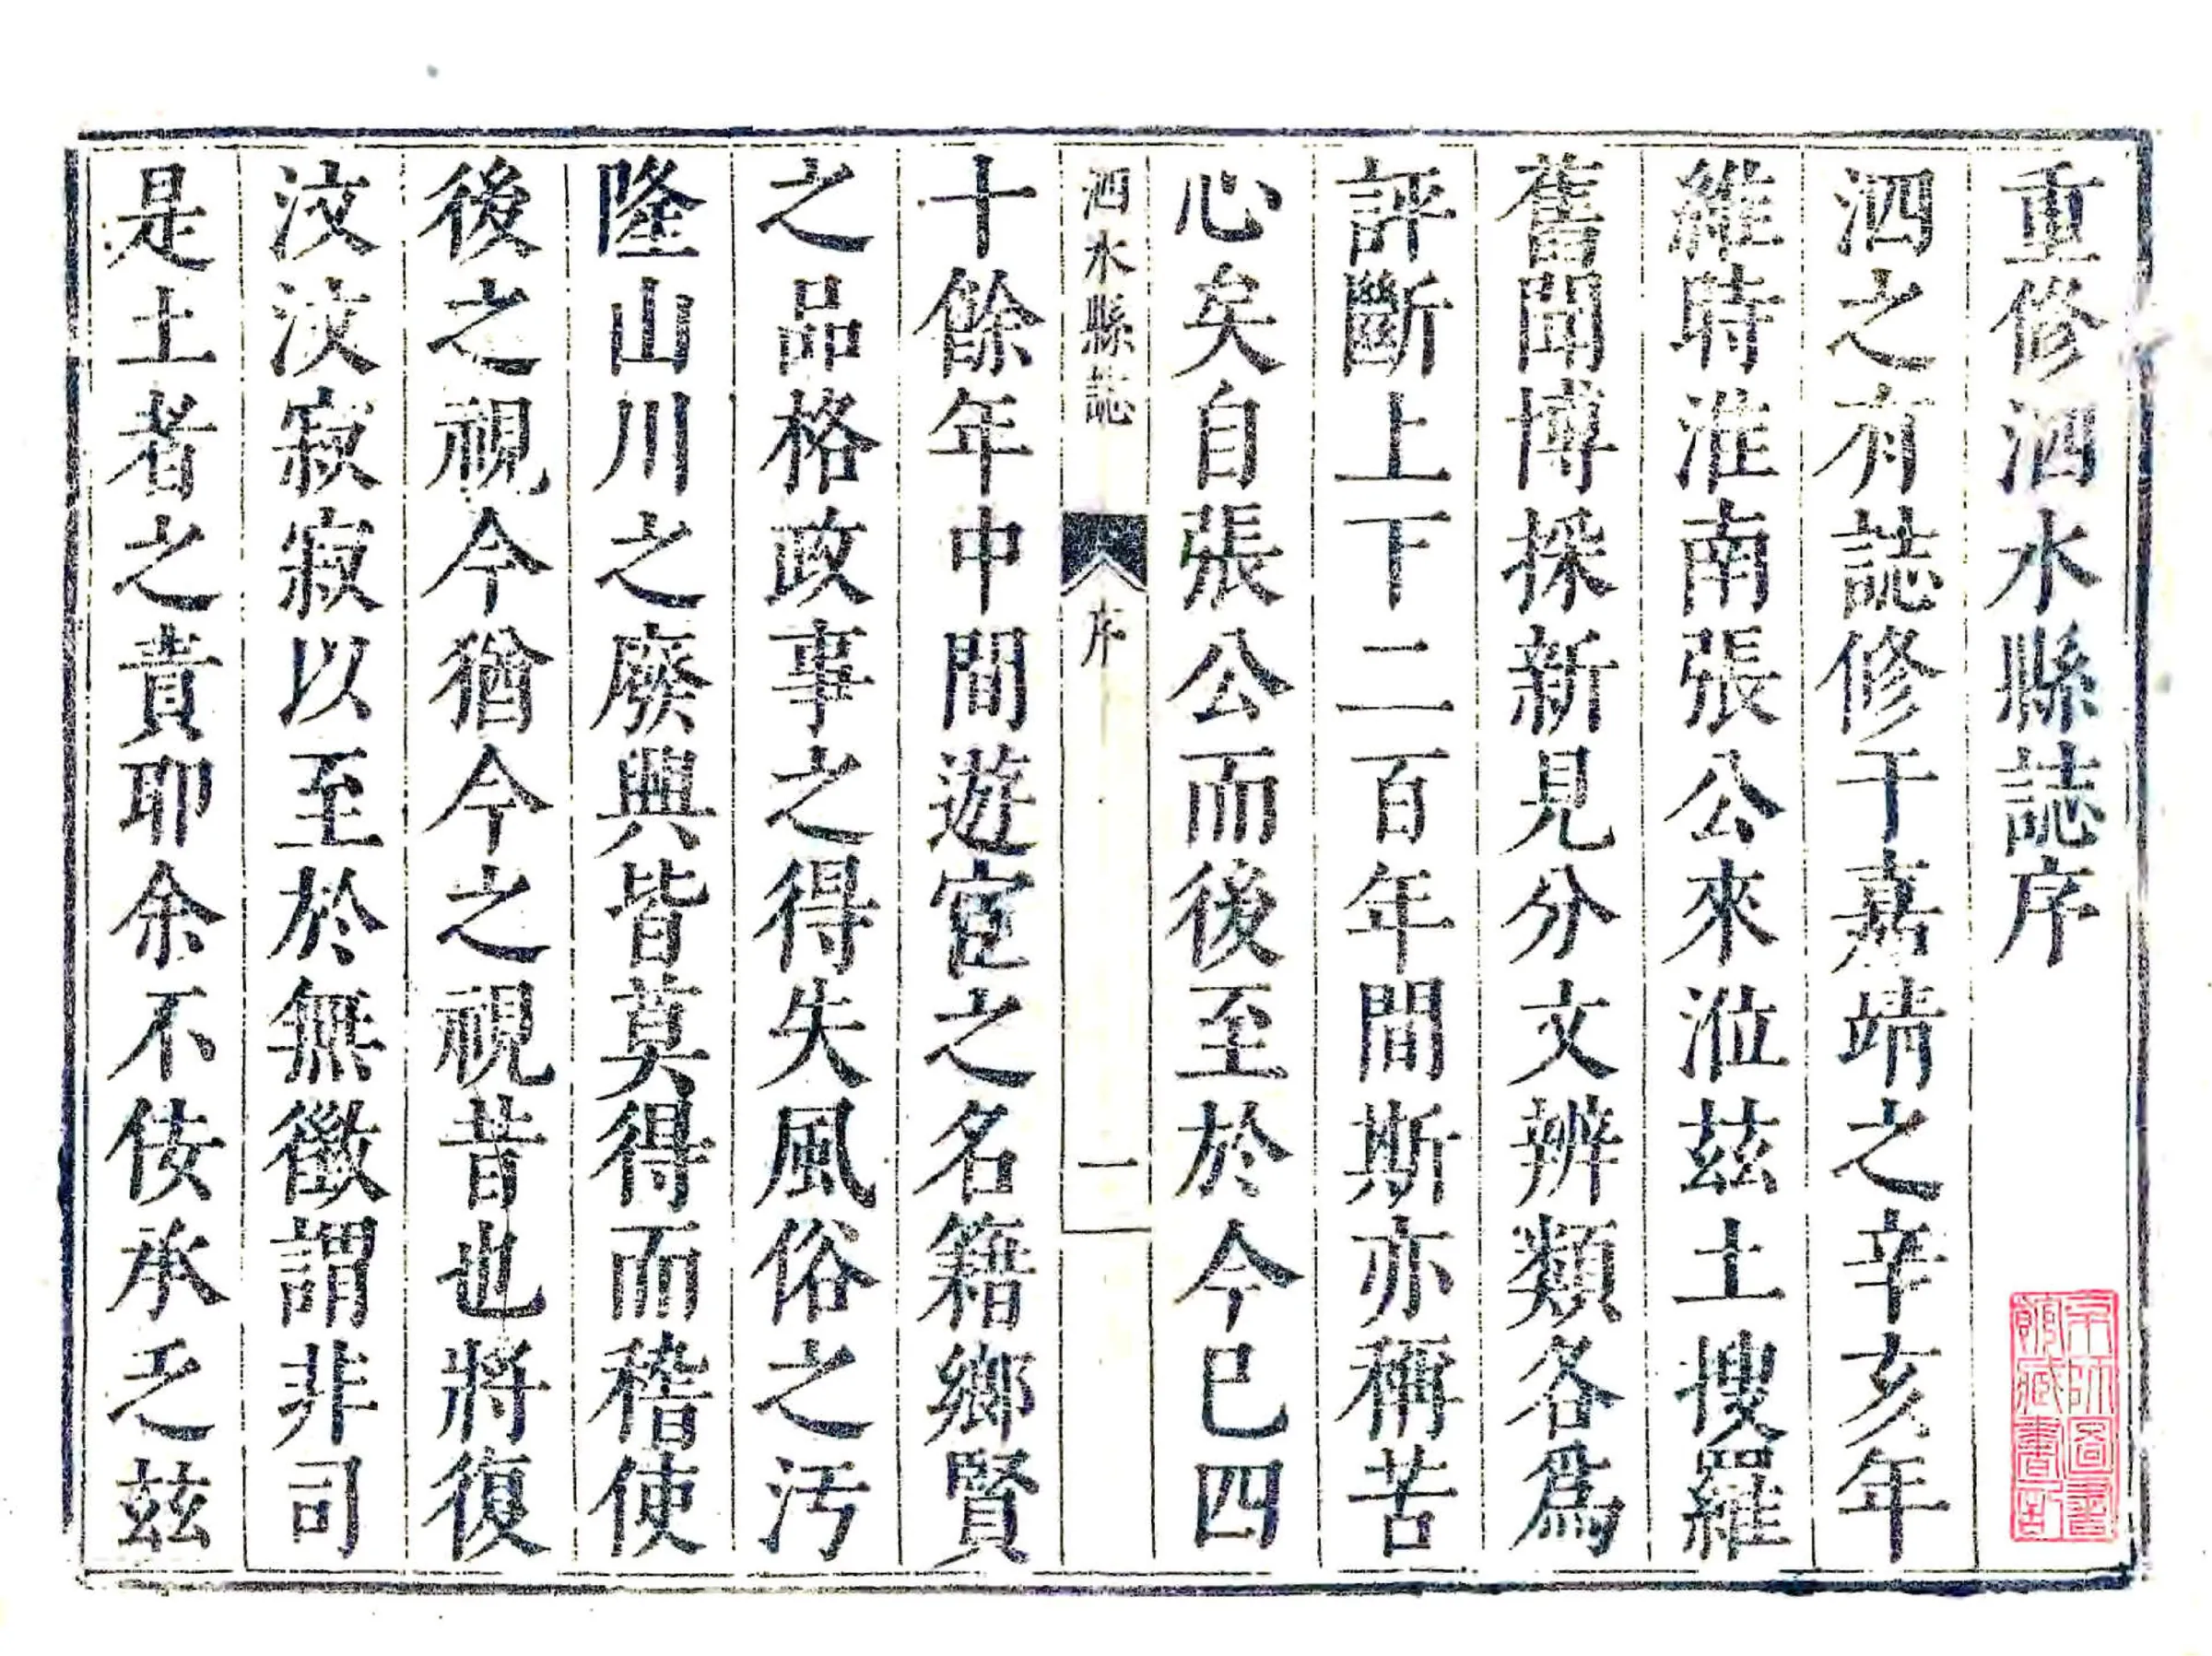 重修泗水縣誌序
泗之有誌修于嘉靖之辛亥年
維時淮南張公來涖茲土搜羅
舊聞博採新見分文辨類各爲
評斷上下二百年間斯亦稱苦
心矣自張公而後至於今巳四
泗水縣誌 序 一
十餘年中間遊宦之名籍鄉賢
之品格政事之得失風俗之汚
隆山川之廢興皆莫得而稽使
後之視今猶今之視昔也將復
汶汶寂寂以至於無徵謂非司
是土者之責耶余不佞承乏茲